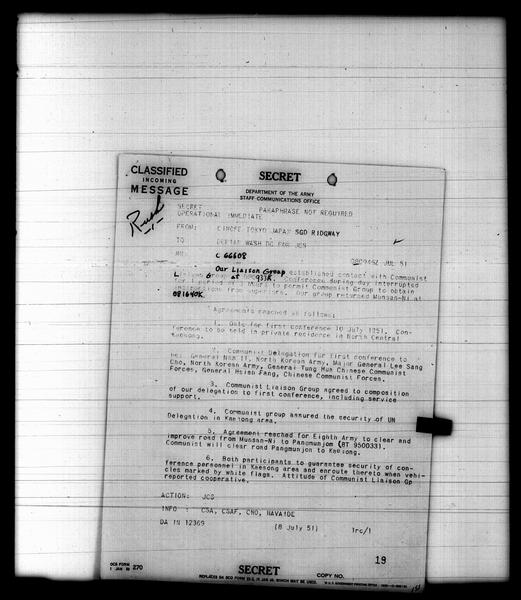 CLASSIFIED
INCOMING
MESSAGE
SECRET
DEPARTMENT OF THE ARMY
STAFF COMMUNICATIONS OFFICE
Rush
SECRET PARAPHRASE NOT REQUIRED
OPERATIONAL IMMEDIATE
FROM: CINCFE TOKYO JAPAN SGD RIDGWAY
TO DEPTAR WASH DC FOR JCS
NR: C 66608 JUL 51
Our Liaison Group established contact with Communist
Liaison Group at 0937K. Conference during day interrupted
for period of 3 hours to permit Communist Group to obtain
instructions from superiors. Our group returned Munsan-Ni at
081640K.
Agreements reached as follows:
1. Date for first conference 10 July 1951. Con-
ference to be held in private residence in North Central
Kaesong.
2. Communist Delegation for first conference to
be: General Nam Il, North Korean Army, Major General Lee Sang
Cho, North Korean Army, General Tung Hua Chinese Communist
Forces, General Hsieh Fang, Chinese Communist Forces.
3. Communist Liaison Group agreed to composition
of our delegation to first conference, including service
support.
4. Communist group assured the security of UN
Delegation in Kaesong area.
5. Agreement reached for Eighth Army to clear and
improve road from Munsan-Ni to Pangmunjom (BT 950033).
Communist will clear road Pangmunjom to Kaesong.
6. Both participants to guarantee security of con-
ference personnel in Kaesong area and enroute thereto when vehi-
cles marked by white flags. Attitude of Communist Liaison Gp
reported cooperative.
ACTION: JCS
INFO : CSA, CSAF, CNO, NAVAIDE
DA IN 12369 (8 July 51) lrc/1
19
OCS FORM
1 JAN 50 270
SECRET
COPY NO.